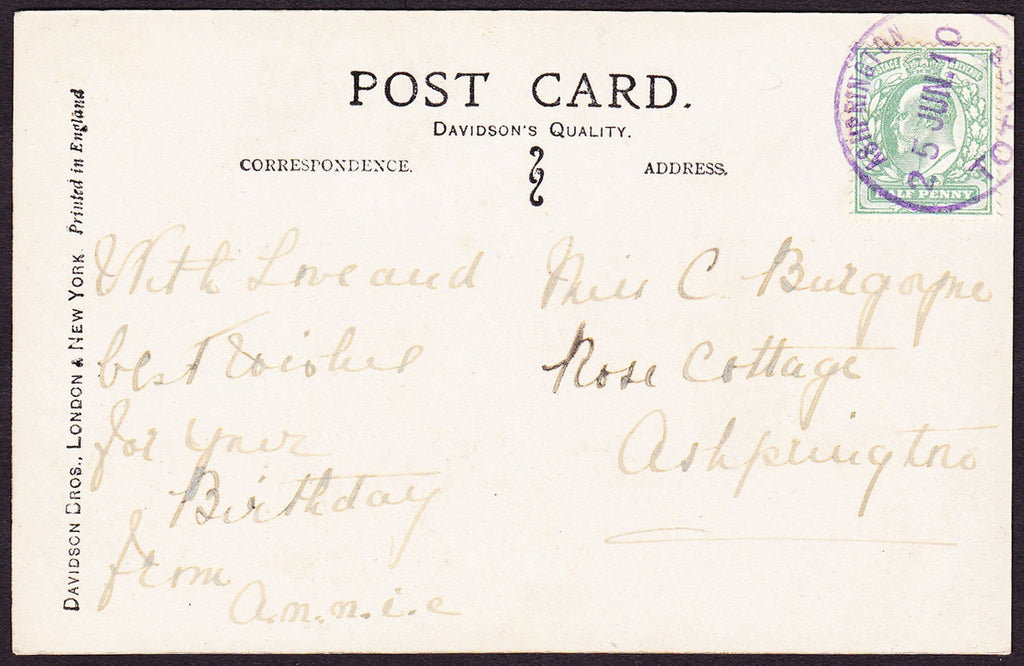 POST CARD.
DAVIDSON'S QUALITY.
CORRESPONDENCE.
ADDRESS.
ASHPRINGTON
25 JUN. 10
TOTN
POSTAGE
HALF PENNY
DAVIDSON BROS., LONDON & NEW YORK. Printed in England
With Love and
best wishes
for your
Birthday
from
A.n.n.i.e
Miss C. Burgoyne
Rose Cottage
Ashprington